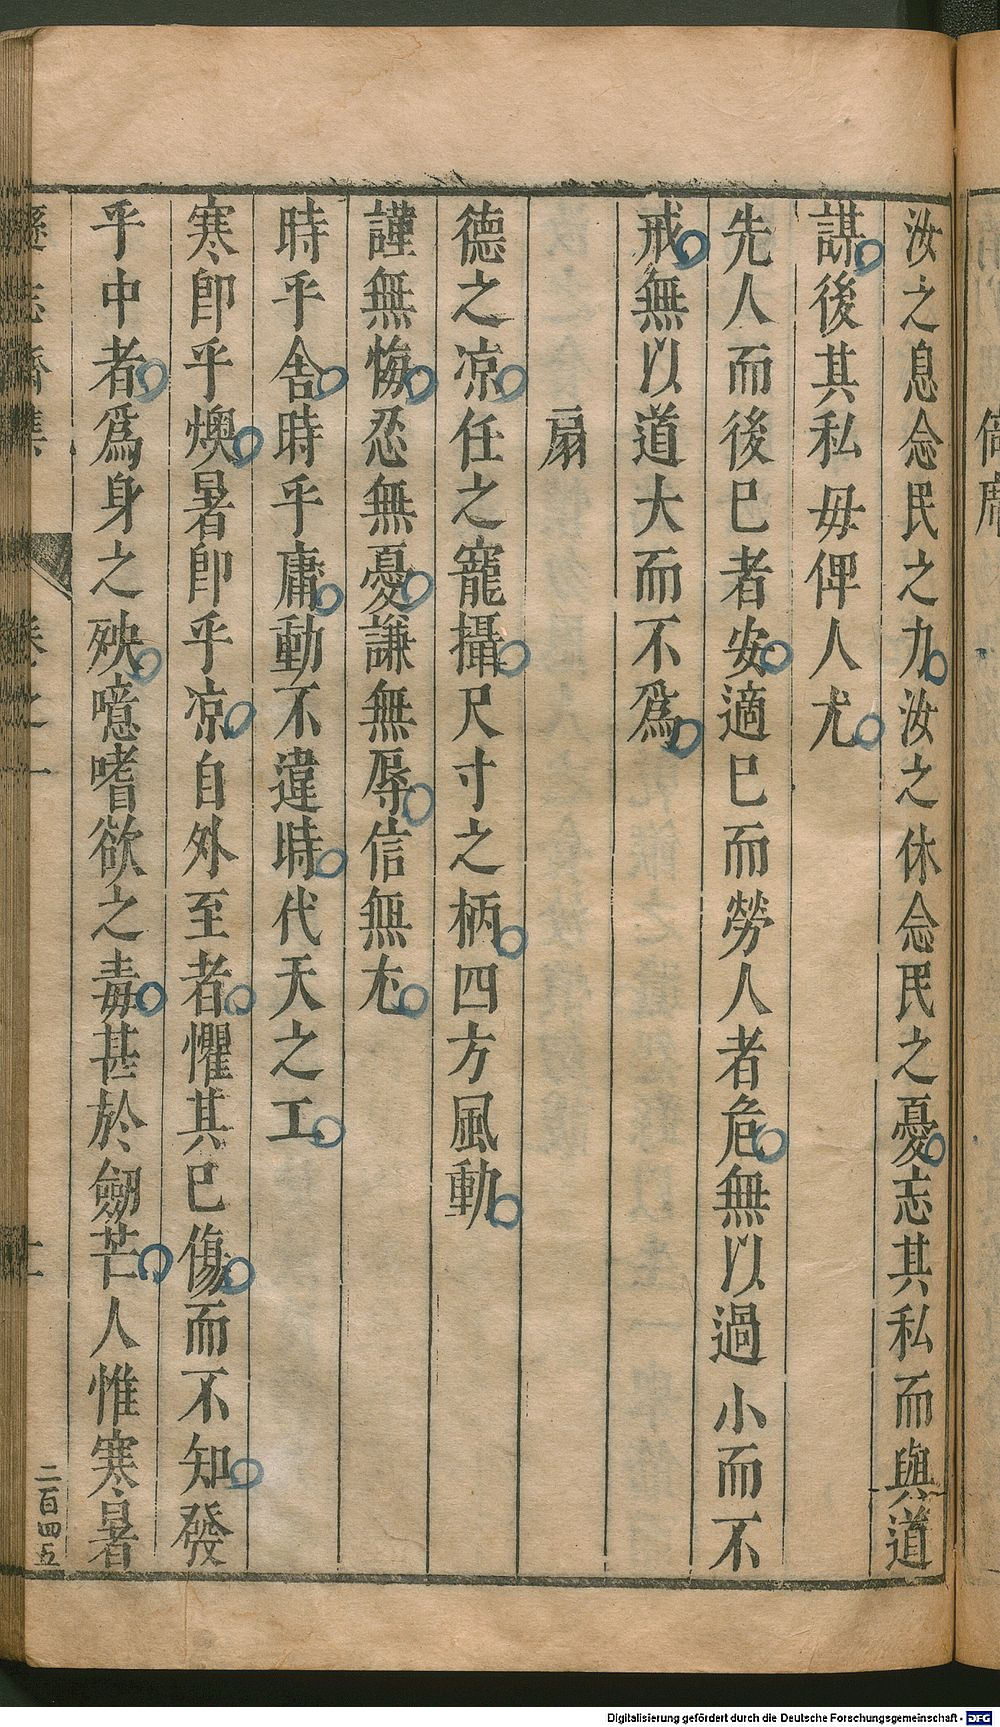 汝之息念民之力汝之休念民之憂忘其私而與道
謀後其私毋俾人尤
先人而後已者安適已而勞人者危無以過小而不
戒無以道大而不爲
扇
德之凉任之寵攝尺寸之柄四方風動
謹無悔忍無憂謙無辱信無尤
時乎舍時乎庸動不違時代天之工
寒卽乎燠暑卽乎凉自外至者懼其已傷而不知發
乎中者爲身之殃噫嗜欲之毒甚於劒芒人惟寒暑
遜志齋集 卷之一
二百四五
Digitalisierung gefördert durch die Deutsche Forschungsgemeinschaft - DFG